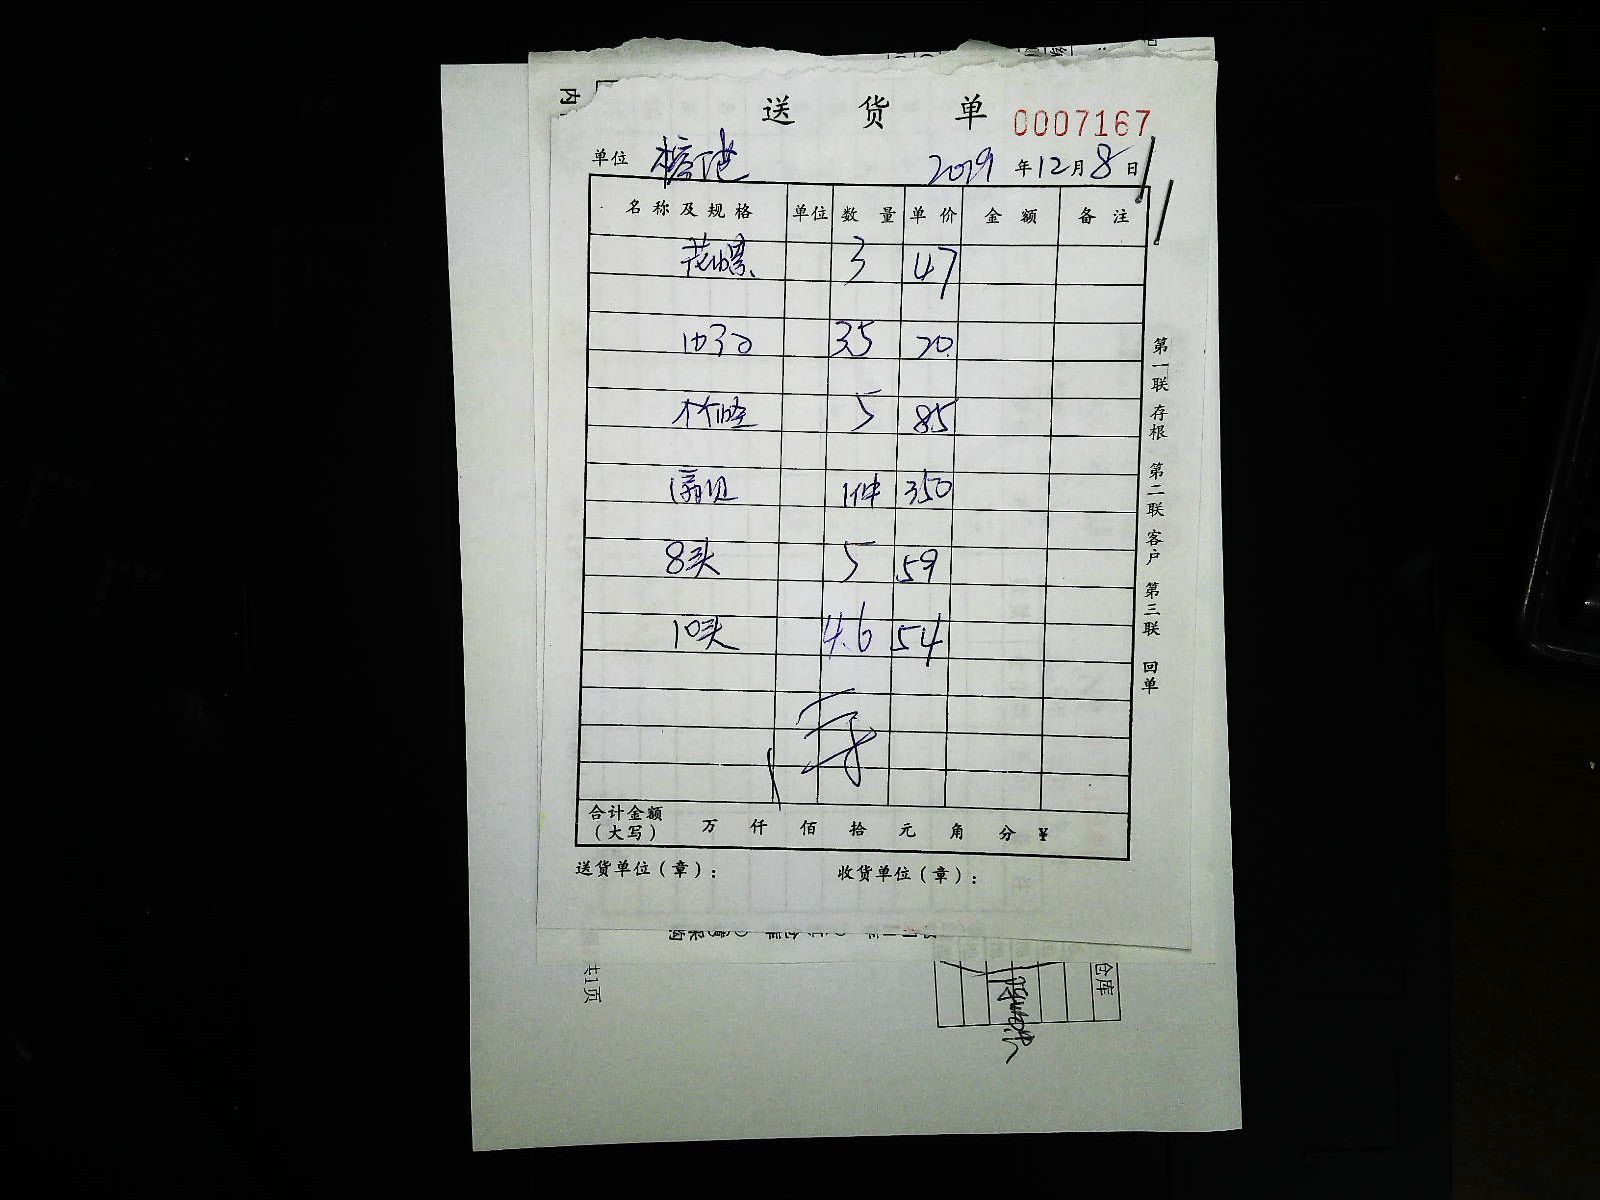 内
送货单 0007167
单位 2019年12月8日
名称及规格 单位 数量 单价 金额 备注
花螺 3 47
35 20
5 85
扇贝 1件 350
8头 5 59
10头 4.6 54
合计金额（大写） 万 仟 佰 拾 元 角 分 ¥
送货单位（章）： 收货单位（章）：
第一联 存根 第二联 客户 第三联 回单
共1页
仓库